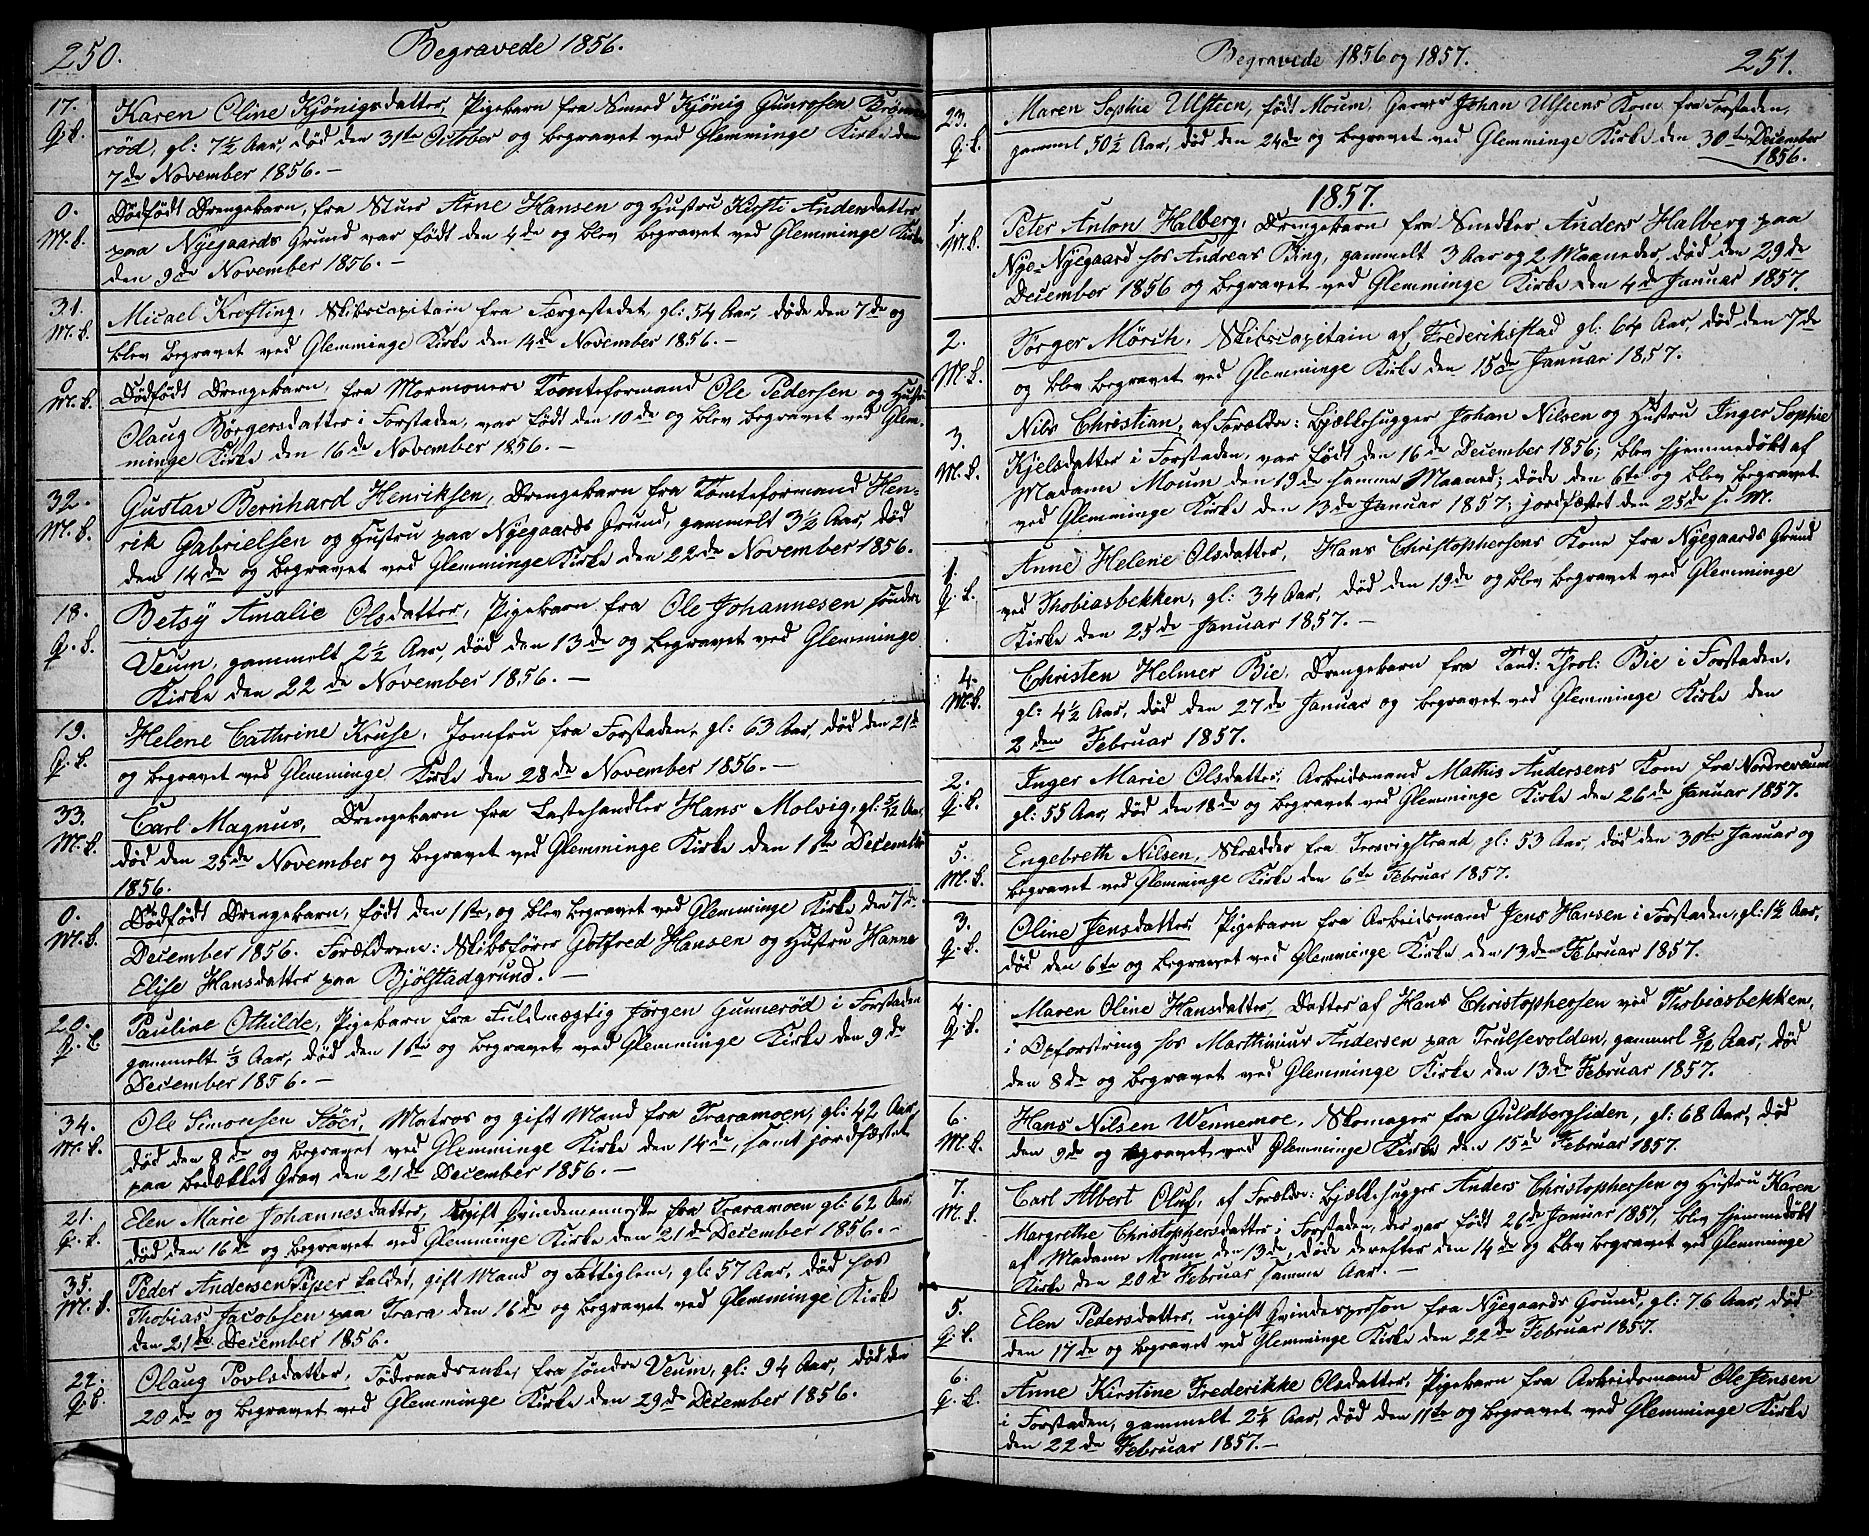 250. Begravede 1856.
17. Karen Oline Kjönigsdatter, Pigebarn fra Smed Kjönig Gunrosen
Q.K. röd, gl: 7½ Aar, död den 31te October og begravet ved Glemminge Kirke den
7de November 1856. –
0. Dödfödt Drengebarn, fra Stuer Arne Hansen og Hustru Kirsti Andersdatter
M.K. paa Nyegaards Grund var födt den 4de og blev begravet ved Glemminge Kirke
den 9de November 1856. –
31. Micael Krefting, Skibscapitain fra Færgestedet, gl: 54 Aar, döde den 7de og
M.K. blev begravet ved Glemminge Kirke den 14de November 1856. –
0. Dödfödt Drengebarn, fra Mormonere Tomteformand Ole Pedersen og Hustru
M.K. Olaug Börgersdatter i Forstaden, var födt den 10de og blev begravet ved Glem-
minge Kirke den 16de November 1856. –
32. Gustav Bernhard Henriksen, Drengebarn fra Tomteformand Hen-
M.K. rik Gabrielsen og Hustru paa Nyegaards Grund, gammelt 3½ Aar, död
den 14de og begravet ved Glemminge Kirke den 22de November 1856.
18. Betsy Amalie Olsdatter, Pigebarn fra Ole Johannesen söndre
Q.K. Veum, gammelt 2½ Aar, död den 13de og begravet ved Glemminge
Kirke den 22de November 1856. –
19. Helene Cathrine Kruse, Jomfru fra Forstaden, gl: 63 Aar, död den 21de
Q.K. og begravet ved Glemminge Kirke den 28de November 1856. –
33. Carl Magnus, Drengebarn fra Lastehandler Hans Molvig, gl: 5/12 Aar,
M.K. död den 25de November og begravet ved Glemminge Kirke den 1ste December
1856.
0. Dödfödt Drengebarn, födt den 1ste, og blev begravet ved Glemminge Kirke den 7de
M.K. December 1856. Forældrene: Skibsförer Gotfred Hansen og Hustru Hanna
Elise Hansdatter paa Bjölstadgrund. –
20. Pauline Othilde, Pigebarn fra Fuldmægtig Jörgen Gunneröd i Forstaden
Q.K. gammelt ⅓ Aar, död den 1ste og begravet ved Glemminge Kirke den 9de
December 1856. –
34. Ole Simonsen Höer, Matros og gift Mand fra Traramoen, gl: 42 Aar,
M.K. död den 8de og begravet ved Glemminge Kirke den 14de, samt jordfæstet
paa bedækket Grav den 21de December 1856. –
21. Elen Marie Johannesdatter, ugift Qvindemenneske fra Traramoen gl: 62 Aar,
Q.K. död den 16de og begravet ved Glemminge Kirke den 21de December 1856. –
35. Peder Andersen Piper kaldet, gift Mand og Fattiglem, gl: 57 Aar, död hos
M.K. Thobias Jacobsen paa Trara den 16de og begravet ved Glemminge Kirke
den 21de December 1856.
22. Olaug Povlsdatter, Föderaadsenke, fra söndre Veum, gl: 94 Aar, död den
Q.K. 20de og begravet ved Glemminge Kirke den 29de December 1856.
Begravede 1856 og 1857. 251.
23. Maren Sophie Ulsteen, födt Moum, Garver Johan Ulsteens Kone fra Forstaden,
Q.K. gammel 50½ Aar, död den 24de og begravet ved Glemminge Kirke den 30te December
1856.
1857.
1. Peter Anton Halberg, Drengebarn fra Snedker Anders Halberg paa
M.K. Nye-Nyegaard hos Andreas Bing, gammelt 3 Aar og 2 Maaneder, död den 29de
December 1856 og begravet ved Glemminge Kirke den 4de Januar 1857.
2. Torger Mörch, Skibscapitain af Frederikstad gl: 64 Aar, död den 7de
M.K. og blev begravet ved Glemminge Kirke den 15de Januar 1857.
3. Nils Christian, af Forældre: Bjælkehugger Johan Nilsen og Hustru Inger Sophie
M.K. Kjelsdatter i Forstaden, var födt den 16de December 1856; blev hjemmedöbt af
Madame Moum den 19de samme Maaned; döde den 6te og blev begravet
ved Glemminge Kirke den 13de Januar 1857; jordfæstet den 25de s. M.
1. Anne Helene Olsdatter, Hans Christophersens Kone fra Nyegaards Grund
Q.K. ved Thobiasbekken, gl: 34 Aar, död den 19de og blev begravet ved Glemminge
Kirke den 25de Januar 1857. –
4. Christen Helmer Bie, Drengebarn fra Cand: Theol: Bie i Forstaden,
M.K. gl: 4½ Aar, död den 27de Januar og begravet ved Glemminge Kirke den
2den Februar 1857.
2. Inger Marie Olsdatter, Arbeidsmand Mathis Andersens Kone fra Nordreveum
Q.K. gl: 55 Aar, död den 18de og begravet ved Glemminge Kirke den 26de Januar 1857.
5. Engebreth Nilsen, Skrædder fra Trosvigstrand gl: 53 Aar, död den 30te Januar og
M.K. begravet ved Glemminge Kirke den 6te Februar 1857.
3. Oline Jensdatter, Pigebarn fra Arbeidsmand Jens Hansen i Forstaden, gl: 1½ Aar,
Q.K. död den 6te og begravet ved Glemminge Kirke den 13de Februar 1857.
4. Maren Oline Hansdatter, Datter af Hans Christophersen ved Thobiasbekken,
Q.K. i Opfostring hos Marthinius Andersen paa Trulsevolden, gammel 8/12 Aar, död
den 8de og begravet ved Glemminge Kirke den 13de Februar 1857.
6. Hans Nilsen Wennemoe, Skomager fra Guldbergsiden, gl: 68 Aar, död
M.K. den 9de og begravet ved Glemminge Kirke den 15de Februar 1857.
7. Carl Albert Oluf, af Forældre: Bjælkehugger Anders Christophersen og Hustru Karen
M.K. Margrethe Christophersdatter i Forstaden, der var födt 26de Januar 1857, blev hjemmedöbt
af Madame Moum den 13de, döde derefter den 14de og blev begravet ved Glemminge
Kirke den 20de Februar samme Aar. –
5. Elen Pedersdatter, ugift Qvindeperson fra Nyegaards Grund, gl: 76 Aar, död
Q.K. den 17de og begravet ved Glemminge Kirke den 22de Februar 1857.
6. Anne Kirstine Frederikke Olsdatter, Pigebarn fra Arbeidsmand Ole Jensen
Q.K. i Forstaden, gammelt 2¼ Aar, död den 11te og begravet ved Glemminge Kirke
den 22de Februar 1857. –